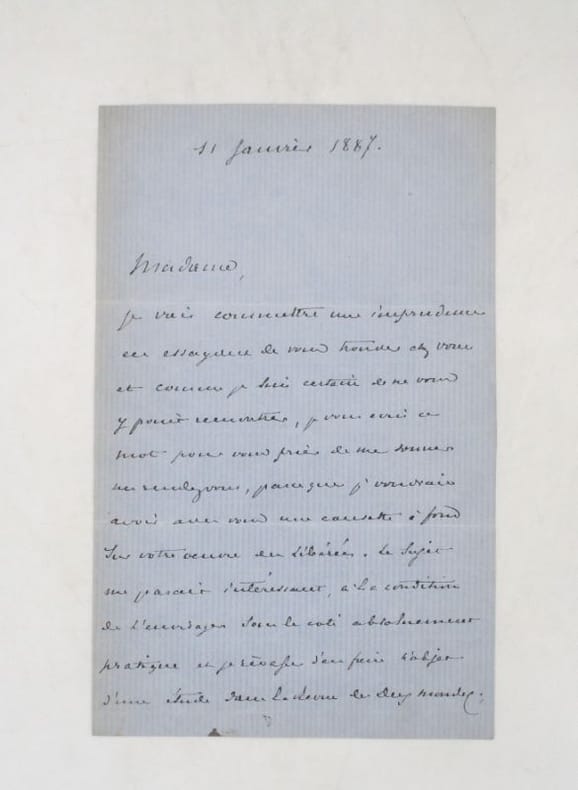 11 Janvier 1887.
Madame,
je vais commettre une imprudence
en essayant de vous trouver chez vous
et comme je suis certain de ne vous
y point rencontrer, je vous écris ce
mot pour vous prier de me donner
un rendezvous, parce que je voudrais
avoir avec vous une causette à fond
sur votre œuvre des Libérées. Le sujet
me parait intéressant, à la condition
de l'envisager sous le coté absolument
pratique et je d'en faire l'objet
d'une étude dans la Revue des deux mondes.